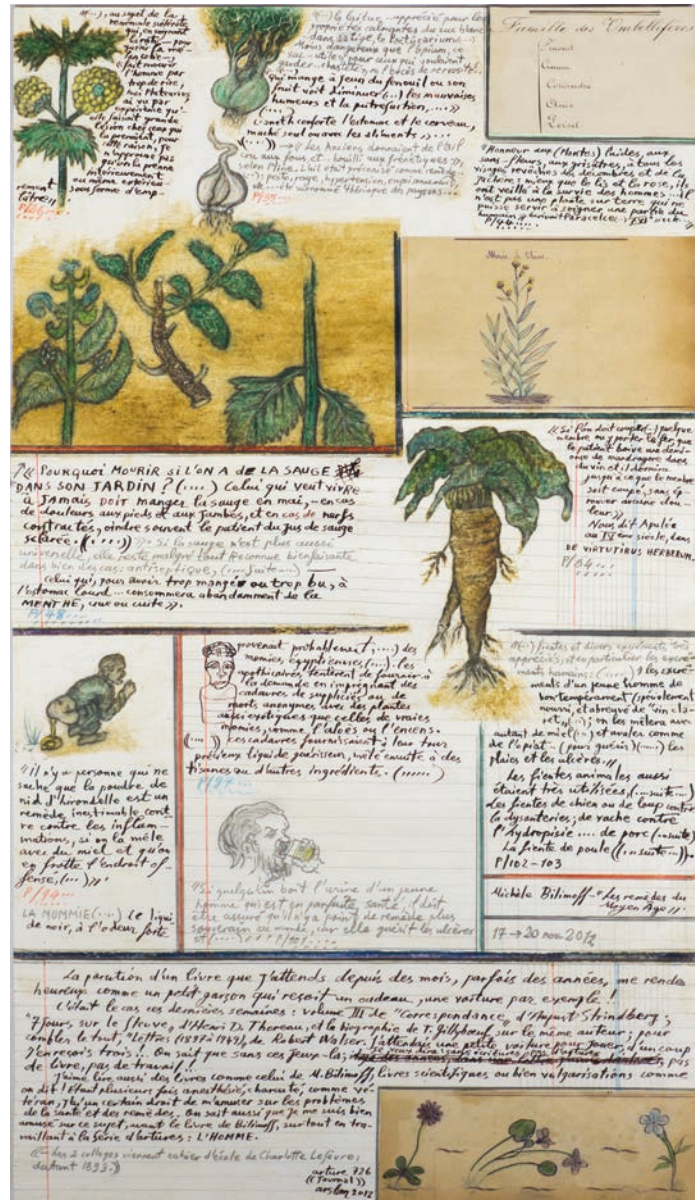 ((...), au sujet de la
renoncule scélérate
qui, en
pour
l'homme par
trop de rire,
moi Platearius
ai vu par
expérience qu'
elle faisait grande
lésion chez ceux qui
la prennent, pour
cette raison, je
n'approuve pas
qu'on la prenne
intérieurement
ou même extérieu-
rement sous forme d'emp-
lâtre))
((...) la laitue, ...appréciée pour les
propriétés calmantes du suc blanc
dans sa tige, le lactucarium...
Moins dangereux que l'opium, ce
suc utile pour ceux qui voudraient
garder chasteté,
qui mange à jeun du fenouil ou son
fruit voit diminuer (...) les mauvaises
humeurs et la putréfaction, ...))
L'aneth conforte l'estomac et le cerveau,
mâché seul ou avec les aliments)) ...
((...)) Les Anciens donnaient de l'ail
cru aux fous, et bouilli aux frénétiques)),
selon Pline. L'ail était préconisé comme remède
(...): peste, rage, hypertension, empoisonnement,
etc... été surnommé thériaque des paysans...
Famille des Ombellifères
Cumin
Coriandre
Anis
Persil
"Honneur aux (Plantes) laides, aux
sans-fleurs, aux grisâtres, à tous les
visages revêches des décombres et de la
friture; mieux que le lis et la rose, ils
ont veillé à la survie des hommes... il
n'est pas une plante sur terre qui ne
puisse servir à soigner une partie du
P/44....
((Si l'on doit couper (...) quelque
membre ou y porter le fer, que
le patient boive une demi-
once de mandragore dans
du vin et il dormira
jusqu'à ce que le membre
soit coupé, sans ép-
rouver aucune dou-
leur.))
Nous dit Apulée
au IV ème siècle, dans
DE VIRTUTIBUS HERBERUM.
P/64....
(( POURQUOI MOURIR SI L'ON A DE LA SAUGE
DANS SON JARDIN ? (....) Celui qui veut vivre
à jamais DOIT manger la sauge en mai, - en cas
de douleurs aux pieds et aux jambes, et en cas de nerfs
contractés, oindre souvent le patient du jus de sauge
sclarée. (....) )) Si la sauge n'est plus aussi
universelle, elle reste malgré tout reconnue bienfaisante
dans bien des cas: antiseptique, (...suite...)
Celui qui, pour avoir trop mangé ou trop bu, a
l'estomac lourd ... consommera abondamment de la
MENTHE, crue ou cuite)).
P/48....
((il n'y a personne qui ne
sache que la poudre de
nid d'hirondelle est un
remède inestimable cont-
re contre les inflam-
mations, si on la mêle
avec du miel et qu'on
en frotte l'endroit of-
fensé, (...))).
P/94....
LA MUMMIE (...) Le liqui-
de noir, à l'odeur forte
provenait probablement (...) des
momies égyptiennes, (....). les
apothicaires tentèrent de fournir à
la demande en imprégnant des
cadavres de suppliciés ou de
morts anonymes avec des plantes
aussi exotiques que celles de vraies
momies, comme l'aloès ou l'encens.
(...) Les cadavres fournissaient à leur tour
précieux liquide guérisseur, mêlé ensuite à des
tisanes ou d'autres ingrédients. (......)
P/97...
"Si quelqu'un boit l'urine d'un jeune
homme qui est en parfaite santé, il doit
être assuré qu'il n'y a point de remède plus
souverain au monde, car elle guérit les ulcères
((...) fientes et divers excréments très
appréciés, et en particulier les excré-
ments humains: (...) les excré-
ments d'un jeune homme de
bon tempérament (spécialement
nourri, et abreuvé de "vin cla-
ret", (...); on les mêlera avec
autant de miel (...) et avalés comme
de l'opiat... (pour guérir) (...) les
plaies et les ulcères.))
Les fientes animales aussi
étaient très utilisées, (...suite...)
Les fientes de chien ou de loup contre
la dysenterie; de vache contre
l'hydropisie .... de porc (...suite)
La fiente de poule ((...suite...)).
P/102-103
Michèle Bilimoff - "Les remèdes du
Moyen Age)).
17 → 20 nov. 2012
La parution d'un livre que j'attends depuis des mois, parfois des années, me rende
heureux comme un petit garçon qui reçoit un cadeau, une voiture par exemple!
C'était le cas ces dernières semaines: volume III de "Correspondance" d'August Strindberg;
"7 jours sur le fleuve" d'Henri D. Thoreau, et la biographie de T. Gillyboeuf sur le même auteur; pour
combler le tout, "Lettres (1897-1949)" de Robert Walser. J'attendais une petite voiture pour jouer, d'un coup
j'en reçois trois!. On sait que sans ces jeux-là; pas
de livre, pas de travail!
J'aime lire aussi des livres comme celui de M. Bilimoff, livres scientifiques ou bien vulgarisations comme
on dit! Etant plusieurs fois anesthésié, charcuté, comme vé-
téran, j'ai un certain droit de m'amuser sur les problèmes
de la santé et des remèdes. On sait aussi que je me suis bien
amusé sur ce sujet, avant le livre de Bilimoff, surtout en tra-
vaillant à la Série d'artures: L'HOMME.
((Les 2 collages viennent cahier d'école de Charlotte Lefèvre,
datant 1893.))
arture 736
((Journal))
arslan 2012